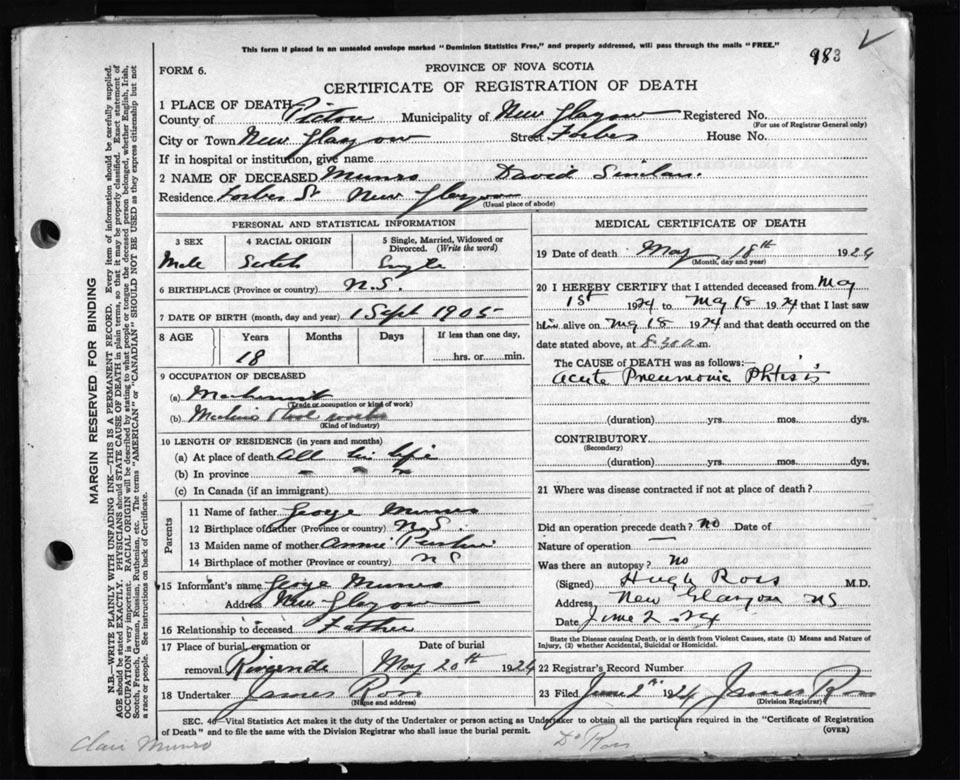 This form if placed in an unsealed envelope marked "Dominion Statistics Free," and properly addressed, will pass through the mails "FREE."
983
FORM 6.
PROVINCE OF NOVA SCOTIA
CERTIFICATE OF REGISTRATION OF DEATH
1 PLACE OF DEATH
County of Pictou Municipality of New Glasgow Registered No.
(For use of Registrar General only)
City or Town New Glasgow Street Forbes House No.
If in hospital or institution, give name
2 NAME OF DECEASED Munro David
Residence Forbes St New Glasgow
(Usual place of abode)
PERSONAL AND STATISTICAL INFORMATION
3 SEX 4 RACIAL ORIGIN 5 Single, Married, Widowed or Divorced. (Write the word)
Male Scotch Single
6 BIRTHPLACE (Province or country) N.S.
7 DATE OF BIRTH (month, day and year) 1 Sept 1905
8 AGE Years Months Days If less than one day,
18 hrs. or min.
9 OCCUPATION OF DECEASED
(a) Machinist
(Trade or occupation or kind of work)
(b) works
(Kind of industry)
10 LENGTH OF RESIDENCE (in years and months)
(a) At place of death All his life
(b) In province " " "
(c) In Canada (if an immigrant)
Parents
11 Name of father George Munro
12 Birthplace of father (Province or country) N.S.
13 Maiden name of mother Annie
14 Birthplace of mother (Province or country) N S
15 Informant's name George Munro
Address New Glasgow
16 Relationship to deceased Father
17 Place of burial, cremation or removal Date of burial
Riverside May 20th 1924
18 Undertaker James Ross
(Name and address)
MEDICAL CERTIFICATE OF DEATH
19 Date of death May 18th 1924
(Month, day and year)
20 I HEREBY CERTIFY that I attended deceased from May
1st 1924 to May 18 1924 that I last saw
him alive on May 18 1924 and that death occurred on the
date stated above, at 8.30 a m.
The CAUSE OF DEATH was as follows:—
Acute Pneumonic Phtisis
(duration) yrs. mos. dys.
CONTRIBUTORY
(Secondary)
(duration) yrs. mos. dys.
21 Where was disease contracted if not at place of death?
Did an operation precede death? no Date of
Nature of operation —
Was there an autopsy? no
(Signed) Hugh Ross M.D.
Address New Glasgow NS
Date June 2 24
State the Disease causing Death, or in death from Violent Causes, state (1) Means and Nature of
Injury, (2) whether Accidental, Suicidal or Homicidal.
22 Registrar's Record Number
23 Filed June 2nd 1924 James Ross
(Division Registrar)
SEC. 40—Vital Statistics Act makes it the duty of the Undertaker or person acting as Undertaker to obtain all the particulars required in the "Certificate of Registration
of Death" and to file the same with the Division Registrar who shall issue the burial permit. (OVER)
Clair Munro
Dr Ross
MARGIN RESERVED FOR BINDING
N.B.—WRITE PLAINLY WITH UNFADING INK—THIS IS A PERMANENT RECORD. Every item of information should be carefully supplied.
AGE should be stated EXACTLY. PHYSICIANS should STATE CAUSE OF DEATH in plain terms, so that it may be properly classified. Exact statement of
OCCUPATION is very important. RACIAL ORIGIN will be described by stating to what people or tongue the deceased person belonged, whether English, Irish,
Scotch, French, German, Russian, Ruthenian, etc. The terms "AMERICAN" or "CANADIAN" SHOULD NOT BE USED as they express citizenship but not
a race or people. See instructions on back of Certificate.